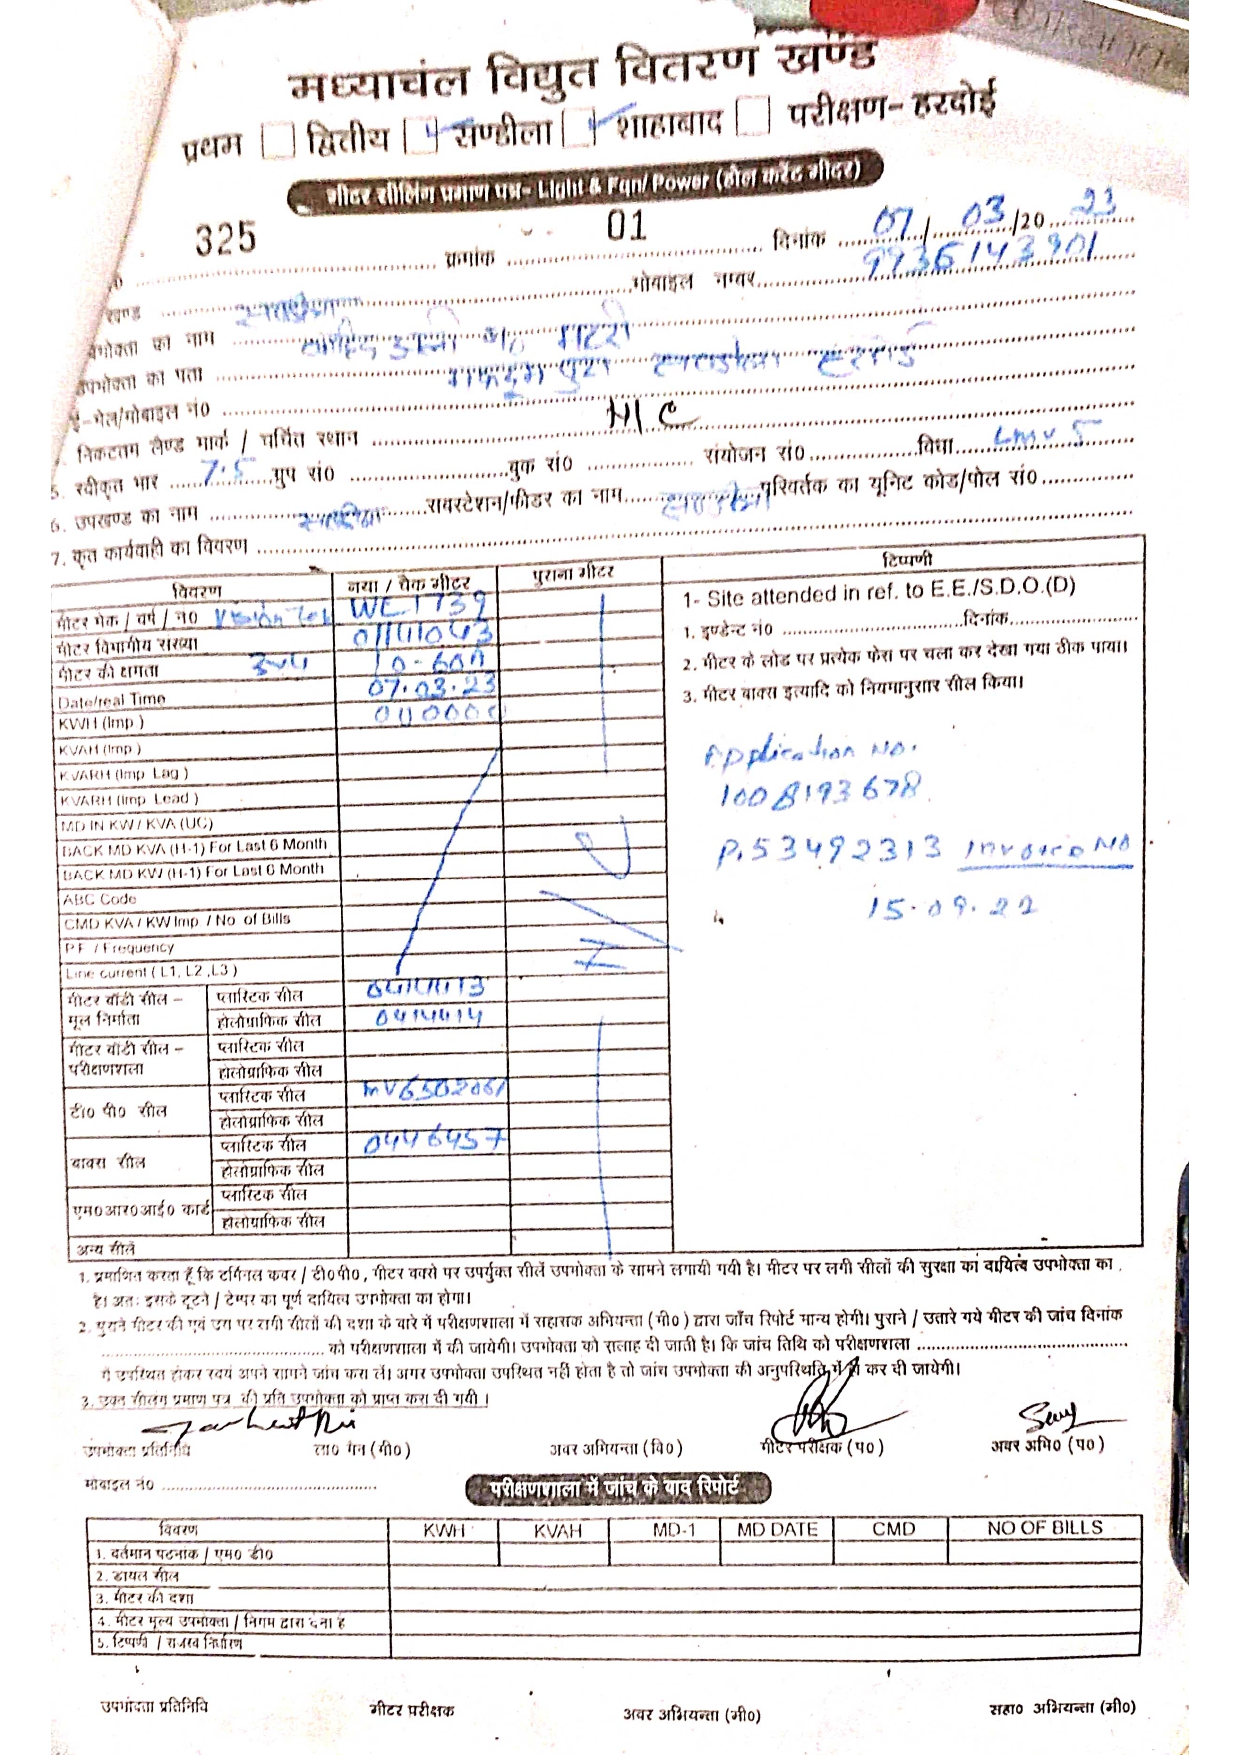 मध्याचंल विद्युत वितरण खण्ड
प्रथम द्वितीय सण्डीला शाहाबाद परीक्षण- हरदोई
मीटर सीलिंग प्रमाण पत्र- Light & Fqn/ Power (होल करेंट मीटर)
325 क्रमांक 01 दिनांक 07/03/20 23
खण्ड मोबाइल नम्बर 9936143901
का नाम
उपभोक्ता का पता
ई-मेल/मोबाइल नं०
निकटतम लैण्ड मार्क / चर्चित स्थान H/C
5. स्वीकृत भार 7.5 ग्रुप सं० बुक सं० संयोजन सं० विधा LMV 5
6. उपखण्ड का नाम सबस्टेशन/फीडर का नाम परिवर्तक का यूनिट कोड/पोल सं०
7. कृत कार्यवाही का विवरण
विवरण नया / चैक मीटर पुराना मीटर टिप्पणी
मीटर मेक / वर्ष / नं०
मीटर विभागीय संख्या
मीटर की क्षमता 10-60A
Date/real Time 07.03.23
KWH (Imp.)
KVAH (Imp.)
KVARH (Imp. Lag )
KVARH (Imp. Lead )
MD IN KW / KVA (UC)
BACK MD KVA (H-1) For Last 6 Month
BACK MD KW (H-1) For Last 6 Month
ABC Code
CMD KVA / KW Imp. / No. of Bills
P.F. / Frequency
Line current ( L1, L2 ,L3 )
1- Site attended in ref. to E.E./S.D.O.(D)
1. इण्डेन्ट नं० दिनांक
2. मीटर के लोड पर प्रत्येक फेस पर चला कर देखा गया ठीक पाया।
3. मीटर बाक्स इत्यादि को नियमानुसार सील किया।
Application No.
1008193678
P.53492313 Invoice No
15.09.22
मीटर बॉडी सील – मूल निर्माता प्लास्टिक सील
होलोग्राफिक सील 0414414
मीटर बॉडी सील – परीक्षणशला प्लास्टिक सील
होलोग्राफिक सील
टी० पी० सील प्लास्टिक सील
होलोग्राफिक सील
बाक्स सील प्लास्टिक सील 0446457
होलोग्राफिक सील
एम०आर०आई० कार्ड प्लास्टिक सील
होलोग्राफिक सील
अन्य सीलें
1. प्रमाणित करता हूँ कि टर्मिनल कवर / टी०पी०, मीटर बाक्से पर उपर्युक्त सीलें उपभोक्ता के सामने लगायी गयी है। मीटर पर लगी सीलों की सुरक्षा का दायित्व उपभोक्ता का
है। अतः इसके टूटने / टेम्पर का पूर्ण दायित्व उपभोक्ता का होगा।
2. पुराने मीटर की एवं उस पर लगी सीलों की दशा के बारे में परीक्षणशाला में सहायक अभियन्ता (मी०) द्वारा जाँच रिपोर्ट मान्य होगी। पुराने / उतारे गये मीटर की जांच दिनांक
को परीक्षणशाला में की जायेगी। उपभोक्ता को सलाह दी जाती है। कि जांच तिथि को परीक्षणशाला
में उपस्थित होकर स्वयं अपने सामने जांच करा लें। अगर उपभोक्ता उपस्थित नहीं होता है तो जांच उपभोक्ता की अनुपस्थिति में ही कर दी जायेगी।
3. उक्त सीलिंग प्रमाण पत्र की प्रति उपभोक्ता को प्राप्त करा दी गयी ।
उपभोक्ता प्रतिनिधि ला० मैन (मी०) अवर अभियन्ता (वि०) मीटर परीक्षक (प०) अवर अभि० (प०)
मोबाइल नं०
परीक्षणशाला में जांच के बाद रिपोर्ट
विवरण KWH KVAH MD-1 MD DATE CMD NO OF BILLS
1. वर्तमान पठनांक / एम० डी०
2. डायल सील
3. मीटर की दशा
4. मीटर मूल्य उपभोक्ता / निगम द्वारा देना है
5. टिप्पणी / राजस्व निर्धारण
उपभोक्ता प्रतिनिधि मीटर परीक्षक अवर अभियन्ता (मी०) सहा० अभियन्ता (मी०)